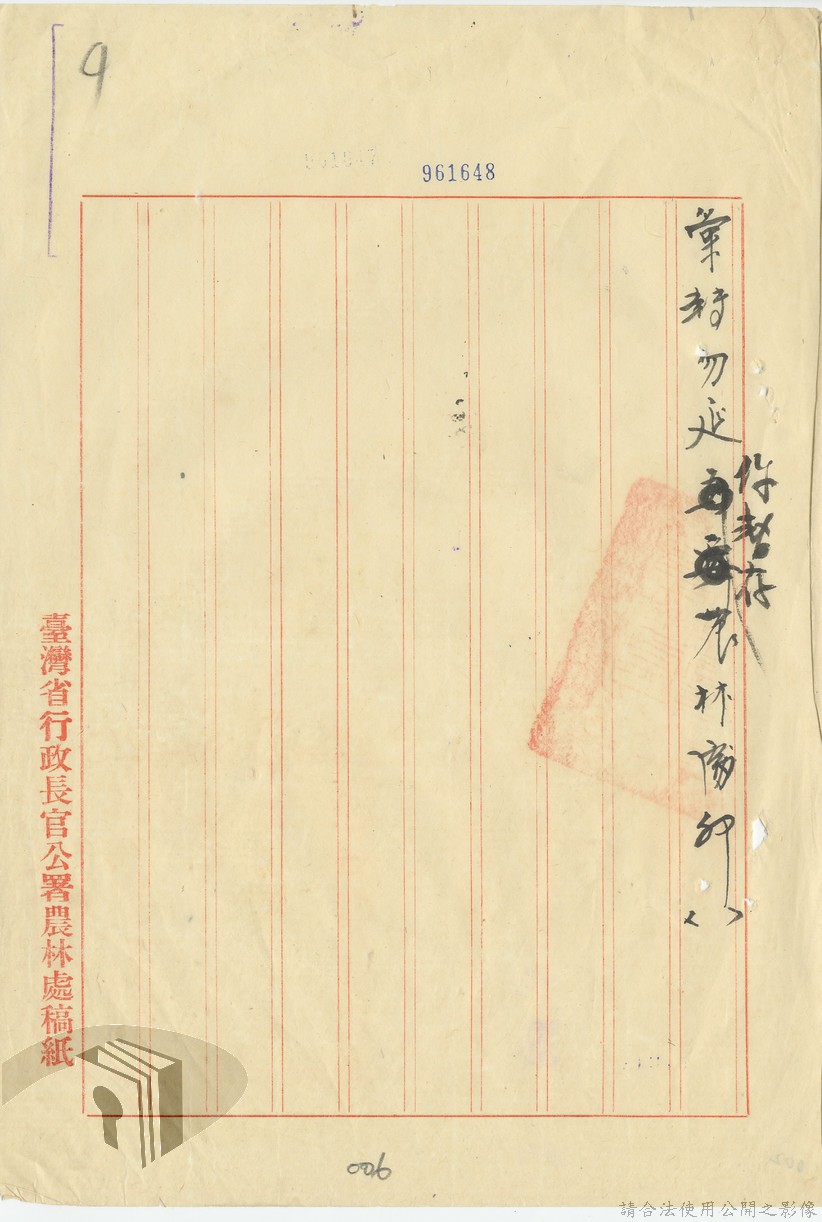 9
961648
彙轉勿延
農林處卯( )
件暫存
臺灣省行政長官公署農林處稿紙
006
請合法使用公開之影像